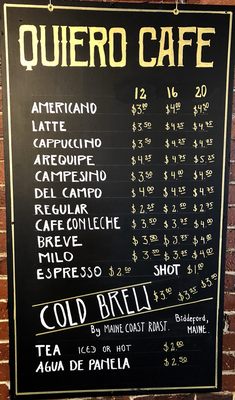 QUIERO CAFE
12 16 20
AMERICANO $3.00 $4.00 $4.50
LATTE $3.50 $4.25 $4.75
CAPPUCCINO $3.50 $4.25 $4.75
AREQUIPE $4.25 $4.75 $5.25
CAMPESINO $3.50 $4.25 $4.75
DEL CAMPO $4.00 $4.25 $4.75
REGULAR $2.25 $2.50 $2.75
CAFE CON LECHE $3.00 $3.75 $4.00
BREVE $3.00 $3.75 $4.50
MILO $3.00 $3.75 $4.00
ESPRESSO $2.00 SHOT $1.00
COLD BREW $3.00 $3.25 $3.50
By MAINE COAST ROAST. Biddeford,
MAINE.
TEA ICED OR HOT $2.00
AGUA DE PANELA $2.50